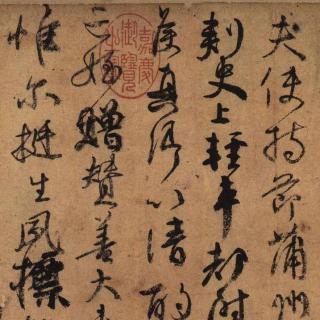 夫使持節蒲州
刺史上輕車都尉
侯真卿以清酌
亡姪贈贊善大夫
惟爾挺生夙標
嘉慶御覽之寶